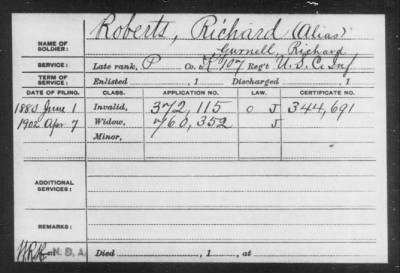 NAME OF SOLDIER: Roberts, Richard (Alias)
Gurnell, Richard
SERVICE: Late rank, P Co. K 107 Reg't U.S.C. Inf
TERM OF SERVICE: Enlisted , 1 Discharged , 1
DATE OF FILING. CLASS. APPLICATION NO. LAW. CERTIFICATE NO.
1883 June 1 Invalid, 372,115 O J 344,691
1902 Apr 7 Widow, 760,352 J
Minor,
ADDITIONAL SERVICES:
REMARKS:
N. D. A. Died , 1 , at